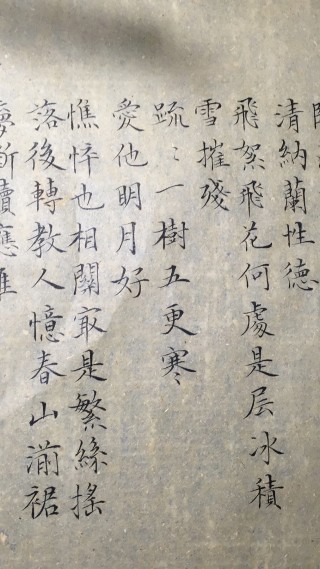 清納蘭性德
飛絮飛花何處是层冰積
雪摧殘
疏〻一樹五更寒
愛他明月好
憔悴也相關㝡是繁絲搖
落後轉教人憶春山湔裙
夢斷續應難